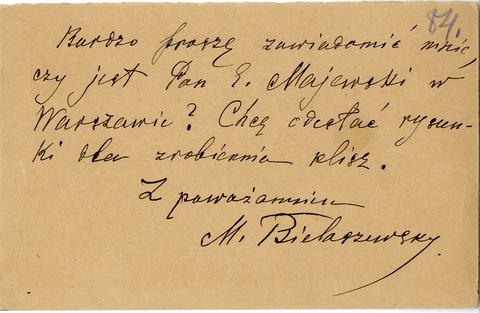 84.
Bardzo proszę zawiadomić mnie,
czy jest Pan E. Majewski w
Warszawie? Chcę odesłać rysun-
ki dla zrobienia klisz.
Z poważaniem
M. Bielaszewsky.